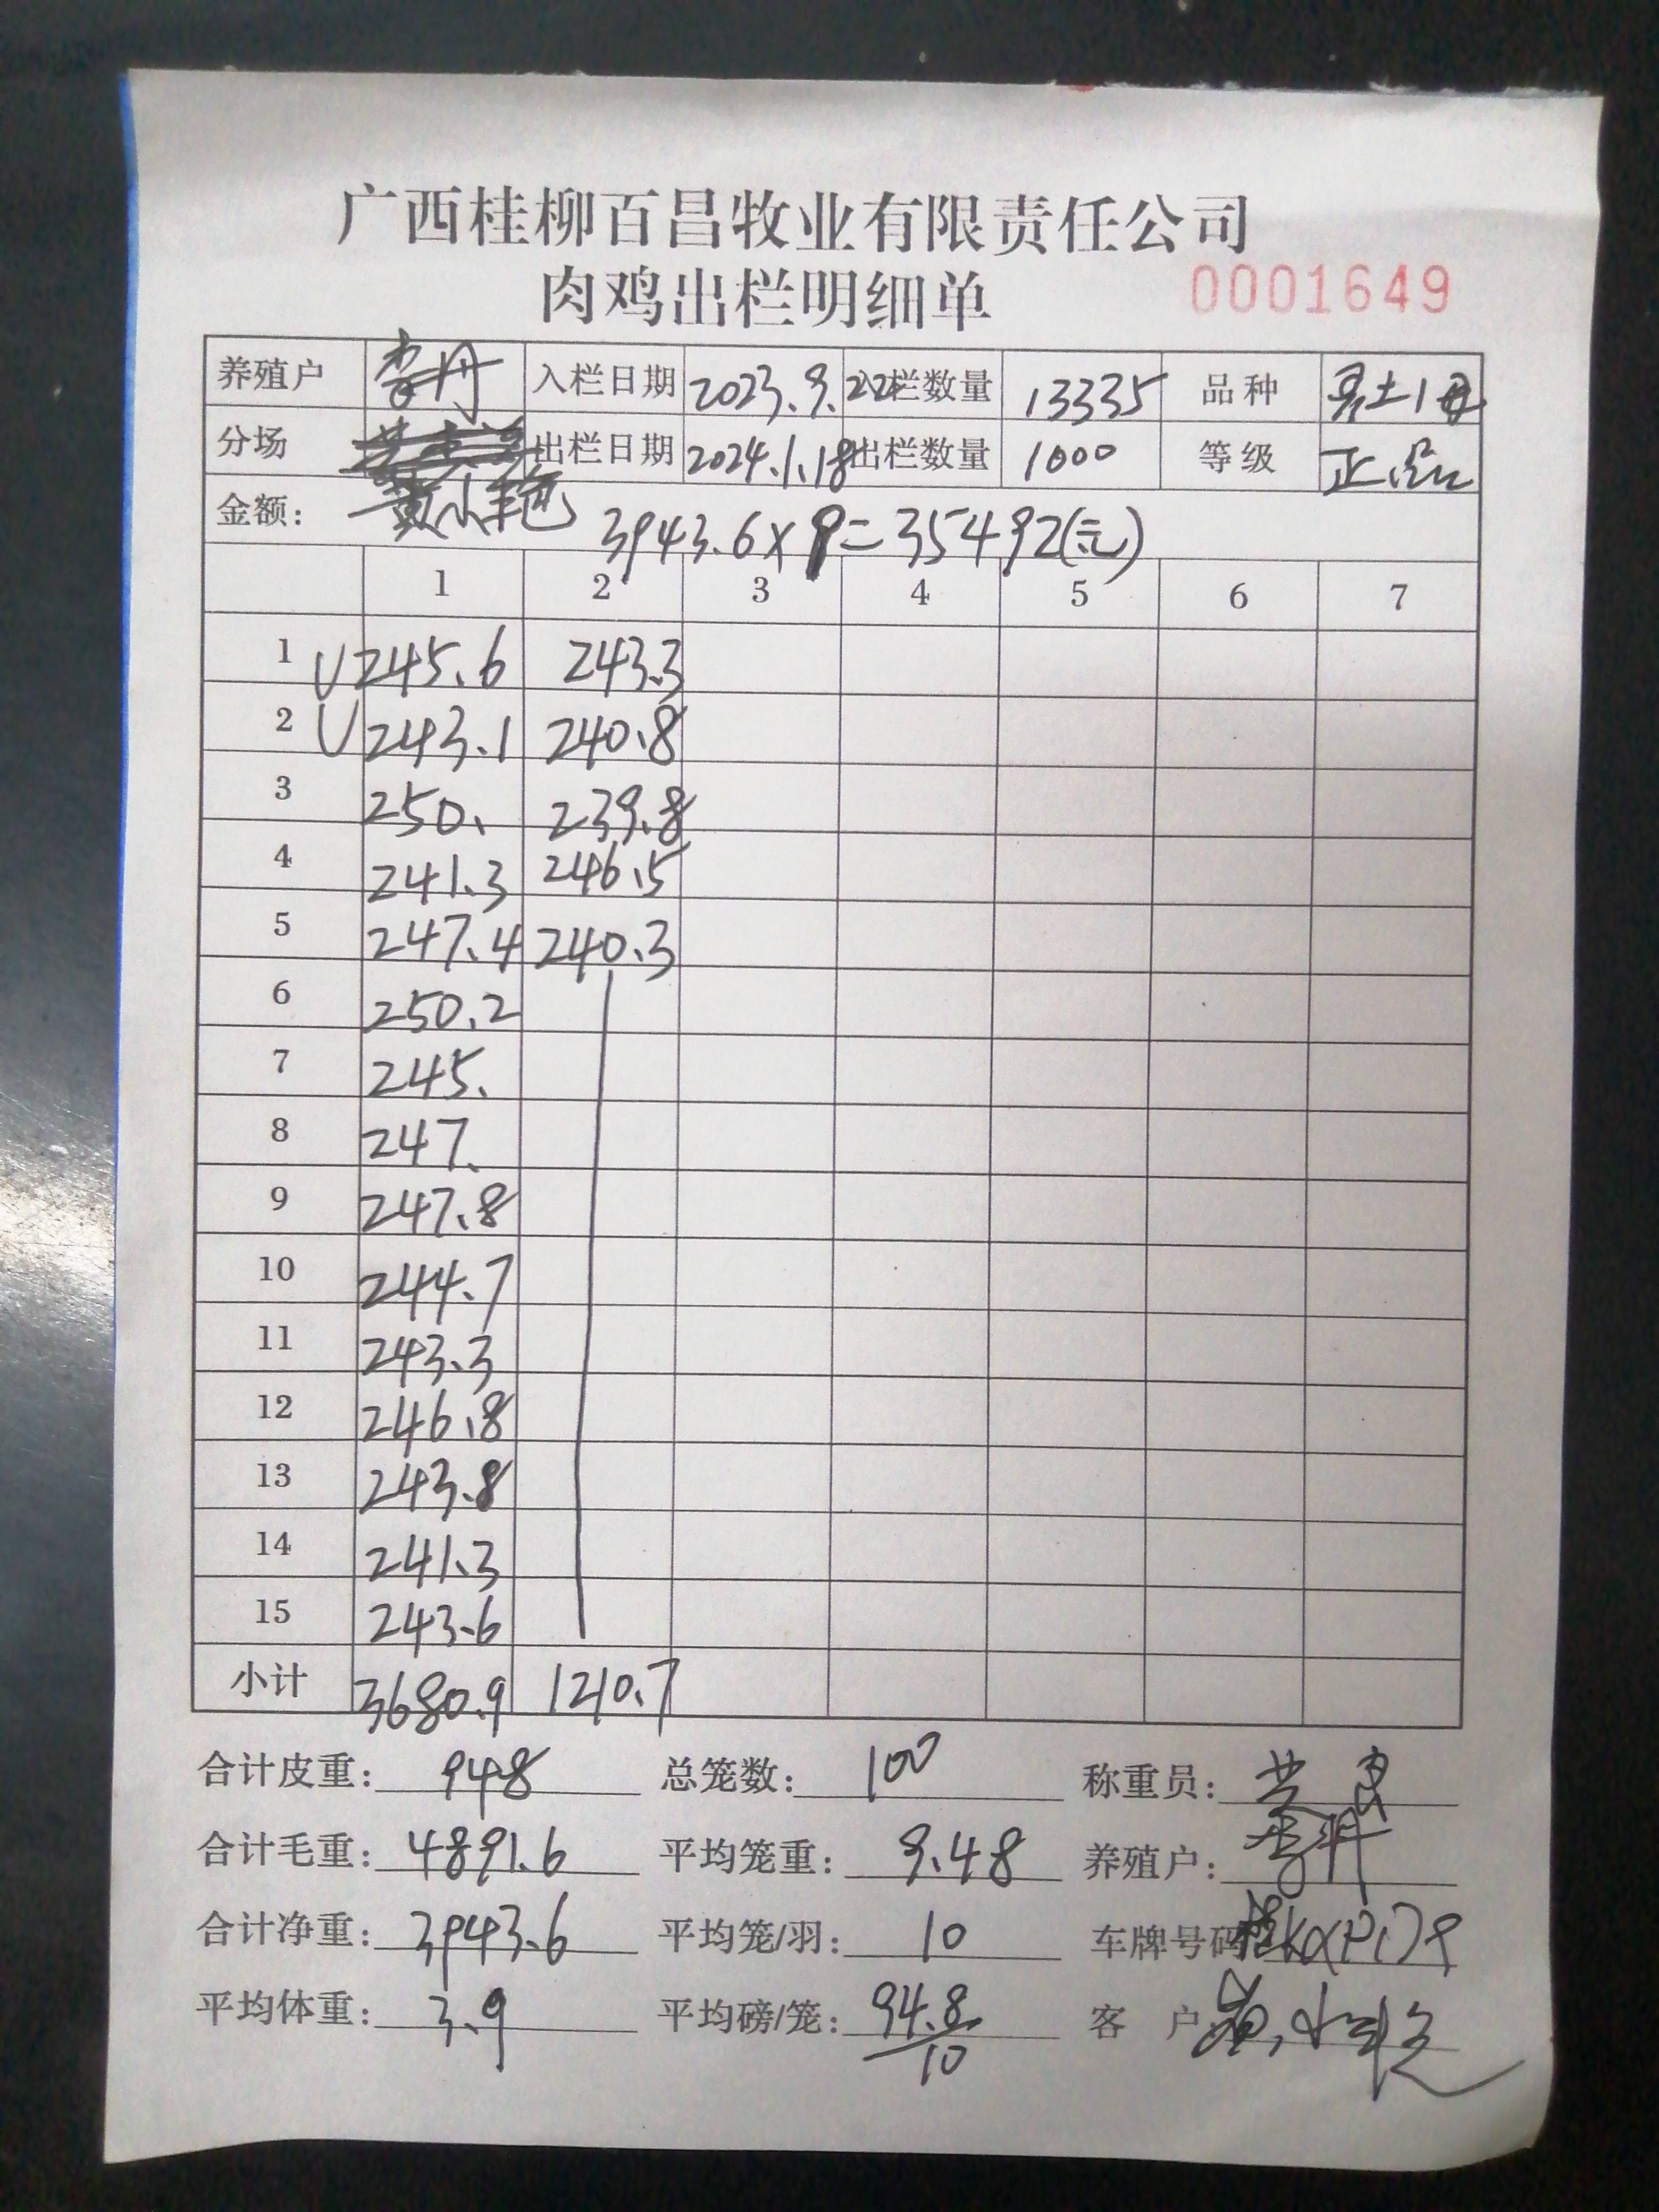 广西桂柳百昌牧业有限责任公司
肉鸡出栏明细单 0001649
养殖户 李丹 入栏日期 2023.9.22 入栏数量 13335 品种 土1母
分场 出栏日期 2024.1.18 出栏数量 1000 等级 正品
金额: 黄小艳 3943.6×9=35492(元)
1 2 3 4 5 6 7
1 245.6 243.3
2 243.1 240.8
3 250. 239.8
4 241.3 246.5
5 247.4 240.3
6 250.2
7 245.
8 247.
9 247.8
10 244.7
11 243.3
12 246.8
13 243.8
14 241.3
15 243.6
小计 3680.9 1210.7
合计皮重: 948 总笼数: 100 称重员:
合计毛重: 4891.6 平均笼重: 9.48 养殖户: 李丹
合计净重: 3943.6 平均笼/羽: 10 车牌号码
平均体重: 3.9 平均磅/笼: 94.8/10 客 户: